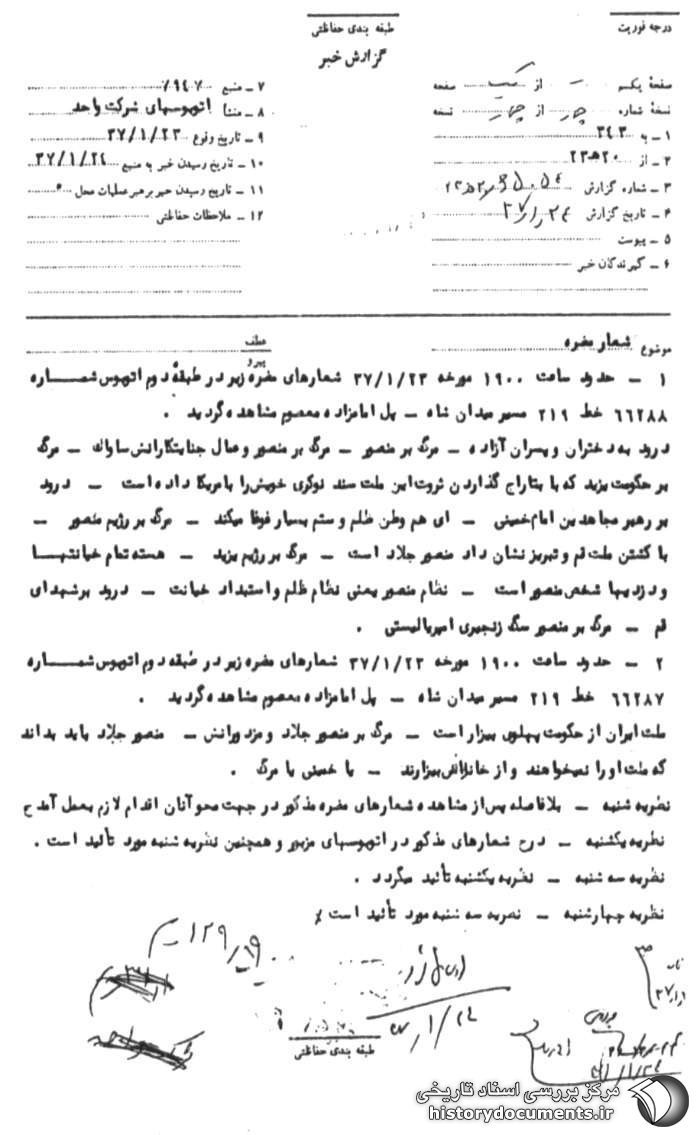 درجه فوریت
طبقه بندی حفاظتی
گزارش خبر
صفحهٔ یکم از یک صفحه
نسخهٔ شماره چهار از چهار نسخه
۱ ـ به ۳۴۳
۲ ـ از ۲۰ه۲۳
۳ ـ شماره گزارش
۴ ـ تاریخ گزارش ۳۷/۱/۲۴
۵ ـ پیوست
۶ ـ گیرندگان خبر
۷ ـ منبع ۷۹۴۷
۸ ـ منشأ اتوبوسهای شرکت واحد
۹ ـ تاریخ وقوع ۳۷/۱/۲۳
۱۰ ـ تاریخ رسیدن خبر به منبع ۳۷/۱/۲۴
۱۱ ـ تاریخ رسیدن خبر برهبر عملیات محل
۱۲ ـ ملاحظات حفاظتی
موضوع شعار مضره
عطف
پیرو
۱ ـ حدود ساعت ۱۹۰۰ مورخه ۳۷/۱/۲۳ شعارهای مضره زیر در طبقه دوم اتوبوس شمـــاره
۶۶۲۸۸ خط ۲۱۹ مسیر میدان شاه ـ پل امامزاده معصوم مشاهده گردید .
درود به دختران و پسران آزاده ـ مرگ بر منصور ـ مرگ بر منصور و عمال جنایتکارانش ساواک ـ مرگ
بر حکومت یزید که با بتاراج گذاردن ثروت این ملت سند نوکری خویش را بامریکا داده است ـ درود
بر رهبر مجاهدین امام خمینی ـ ای هم وطن ظلم و ستم بسیار غوغا میکند ـ مرگ بر رژیم منصور ـ
با کشتن ملت قم و تبریز نشان داد منصور جلاد است ـ مرگ بر رژیم یزید ـ هسته تمام خیانتهـــا
و دزدیها شخص منصور است ـ نظام منصور یعنی نظام ظلم و استبداد خیانت ـ درود بر شهدای
قم ـ مرگ بر منصور سگ زنجیری امپریالیستی .
۲ ـ حدود ساعت ۱۹۰۰ مورخه ۳۷/۱/۲۳ شعارهای مضره زیر در طبقه دوم اتوبوس شمـــاره
۶۶۲۸۷ خط ۲۱۹ مسیر میدان شاه ـ پل امامزاده معصوم مشاهده گردید .
ملت ایران از حکومت پهلوی بیزار است ـ مرگ بر منصور جلاد و مزدورانش ـ منصور جلاد باید بداند
که ملت او را نمیخواهند و از خاندانش بیزارند ـ یا خمینی یا مرگ .
نظریه شنبه ـ بلافاصله پس از مشاهده شعارهای مضره مذکور در جهت محو آنان اقدام لازم بعمل آمد ح
نظریه یکشنبه ـ درج شعارهای مذکور در اتوبوسهای مزبور و همچنین نظریه شنبه مورد تأئید است .
نظریه سه شنبه ـ نظریه یکشنبه تأئید میگردد .
نظریه چهارشنبه ـ نظریه سه شنبه مورد تأئید است
طبقه بندی حفاظتی
مرکز بررسی اسناد تاریخی
historydocuments.ir